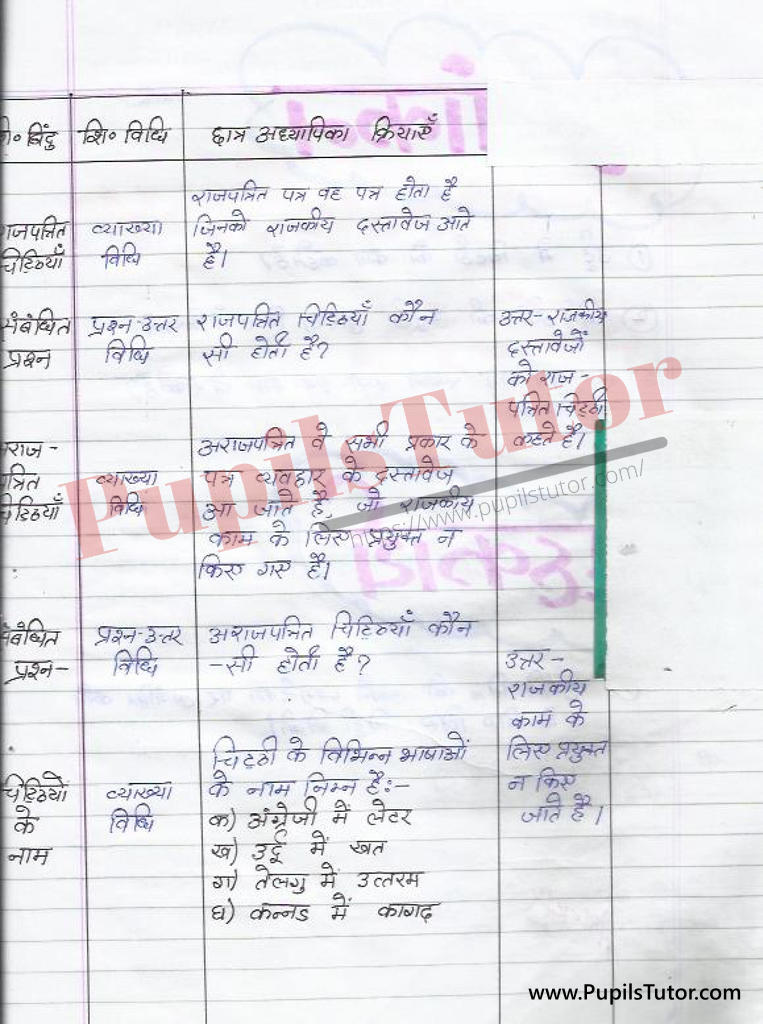 बिंदु शि० विधि छात्र अध्यापिका क्रियाएँ
राजपत्रित पत्र वह पत्र होता है
राजपत्रित व्याख्या जिनको राजकीय दस्तावेज आते
चिट्ठियाँ विधि है।
संबंधित प्रश्न-उत्तर राजपत्रित चिट्ठियाँ कौन
प्रश्न विधि सी होती है?
उत्तर- राजकीय
दस्तावेजों
को राज-
पत्रित चिट्ठी
कहते है।
अराजपत्रित वे सभी प्रकार के
अराज-
पत्रित व्याख्या पत्र व्यवहार के दस्तावेज
चिट्ठियाँ विधि आ जाते है, जो राजकीय
काम के लिए प्रयुक्त न
किए गए है।
संबंधित प्रश्न-उत्तर अराजपत्रित चिट्ठियाँ कौन
प्रश्न- विधि -सी होती है?
उत्तर-
राजकीय
काम के
लिए प्रयुक्त
न किए
जाते है।
चिट्ठी के विभिन्न भाषाओं
चिट्ठियों व्याख्या के नाम निम्न है:-
के विधि क) अंग्रेजी में लेटर
नाम ख) उर्दू में खत
ग) तेलगु में उत्तरम
घ) कन्नड में कागद
PupilsTutor
https://www.pupilstutor.com/
www.PupilsTutor.com